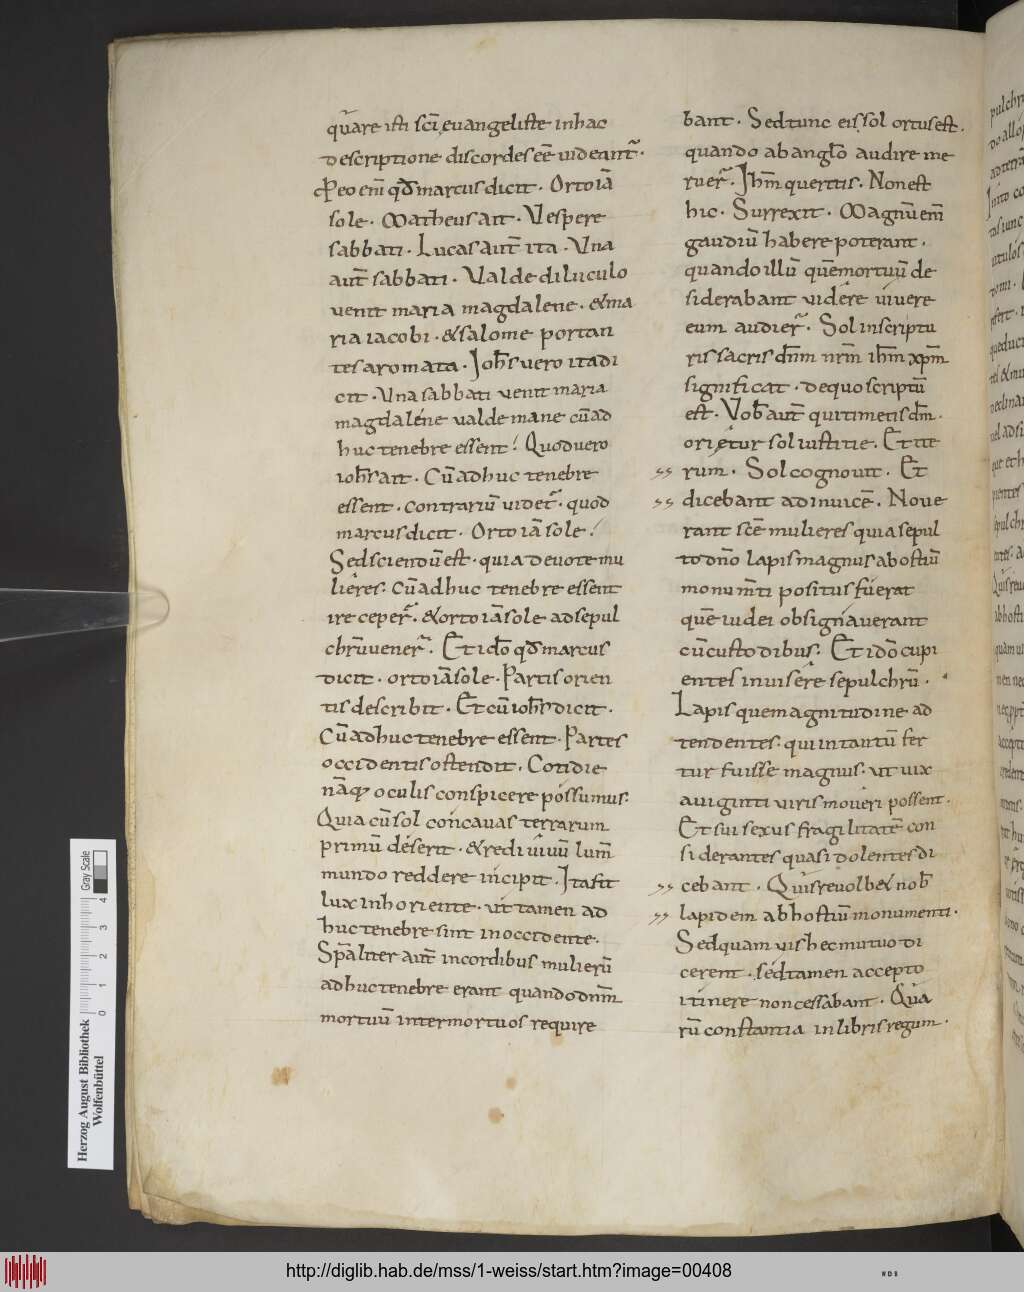 quare isti sc̄i euangeliste in hac
descriptione discordes eē uideant᷑.
Pro eo em̄ qđ marcus dicit. Orto iā
sole. Matheus ait. Vespere
sabbati. Lucas aut̄ ita. Vna
aut̄ sabbati. Valde diluculo
uenit maria magdalene. & ma
ria iacobi. & salome portan
tes aromata. Ioh̄s uero ita di
cit. Vna sabbati uenit maria
magdaléne valde mane cū ad
huc tenebre essent. Quod uero
ioh̄s ait. Cū adhuc tenebre
essent. contrariū uidet᷑. quod
marcus dicit. Orto iā sole.
Sed sciendū est. quia deuote mu
lieres. cū adhuc tenebre essent
ire ceper᷑. & orto iā sole ad sepul
chrū uener᷑. Et ido̅ qđ marcus
dicit. orto iā sole. Partis orien
tis describit. Et cū ioh̄s dicit.
Cū adhuc tenebre essent. Partes
occidentis ostendit. Cotidie
nāq; oculis conspicere possumus.
Quia cū sol concauas terrarum
primū déserit. & rediuiuū lum̄
mundo reddere incipit. Ita fit
lux in horiente. vt tamen ad
huc tenebre sint in occidente.
Sp̄aliter aut̄ in cordibus mulierū
adhuc tenebre erant quando dn̄m
mortuū inter mortuos require
bant. Sed tunc eis sol ortus est.
quando ab anglo̅ audire me
ruer᷑. Ih̄m queritis. Non est
hic. Surrexit. Magnū em̄
gaudiū habere poterant.
quando illū quē mortuū de
siderabant vidére uiuere
eum audier᷑. Sol in scriptu
ris sacris dn̄m nr̄m ih̄m xp̄m
significat. de quo scriptū
est. Vob̄ aut̄ qui timetis dm̄.
orietur sol iustitie. Et ite
rum. Sol cognouit. Et
dicebant ad inuicē. Noue
rant scē mulieres quia sepul
to dn̄o lapis magnus ab ostiū
monum̄ti positus fúerat
quē iudei obsignáuerant
cū custodibus. Et ido̅ cupi
entes inuisere sepulchrū.
Lapis quem agnitudine ad
tendentes. qui in tantū fer
tur fuisse magnus. vt uix
a uiginti viris moueri possent.
Et sui sexus fragilitatē con
siderantes quasi dolentes di
cebant. Quis reuolb& nob̄
lapidem ab hostiū monumenti.
Sed quam uis hec mutuo di
cerent. sed tamen accepto
itinere non cessabant. Qua
rū constantia in libris regum.
Gray Scale
0 1 2 3 4
Herzog August Bibliothek
Wolfenbüttel
http://diglib.hab.de/mss/1-weiss/start.htm?image=00408